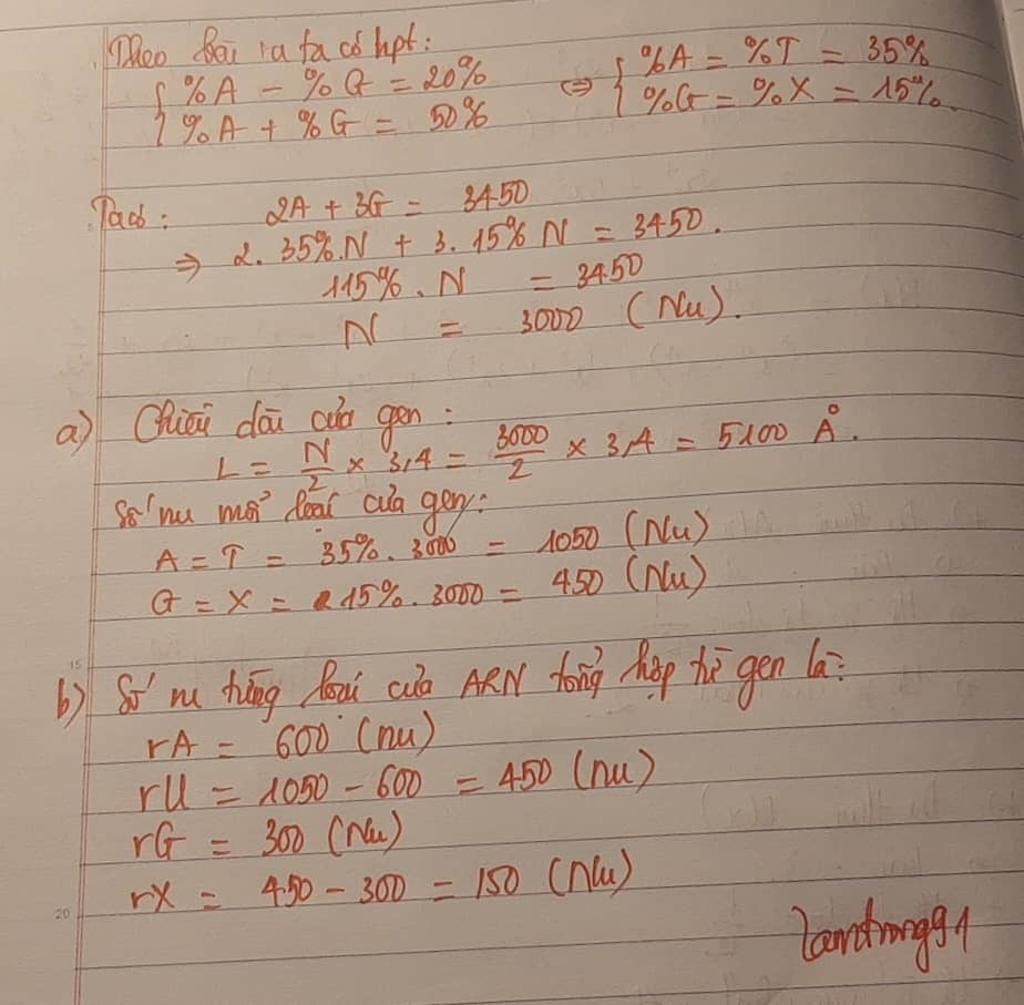 Theo bài ra ta có hpt:
{ %A - %G = 20% ⇔ { %A = %T = 35%
{ %A + %G = 50% { %G = %X = 15%.
Ta có: 2A + 3G = 3450
⇒ 2. 35%.N + 3. 15% N = 3450.
115%. N = 3450
N = 3000 (Nu).
a) Chiều dài của gen:
L = N/2 × 3,4 = 3000/2 × 3,4 = 5100 Å.
Số nu mỗi loại của gen:
A = T = 35%. 3000 = 1050 (Nu)
G = X = 15%. 3000 = 450 (Nu)
15
b) Số nu từng loại của ARN tổng hợp từ gen là:
rA = 600 (nu)
rU = 1050 - 600 = 450 (nu)
rG = 300 (Nu)
rX = 450 - 300 = 150 (Nu)
20
lamtrong91